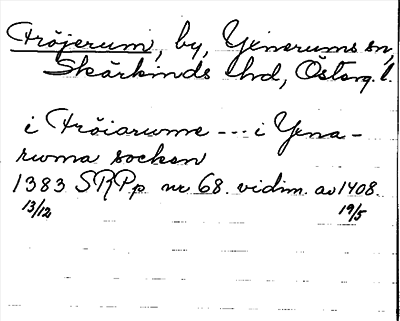 Fröjerum, by, Yxnerums sn,
Skärkinds hd, Österg. l.
i Fröiarwme --- i Yxna-
rwma socken
1383 SRPp nr 68. vidim. av 1408.
13/12 19/5